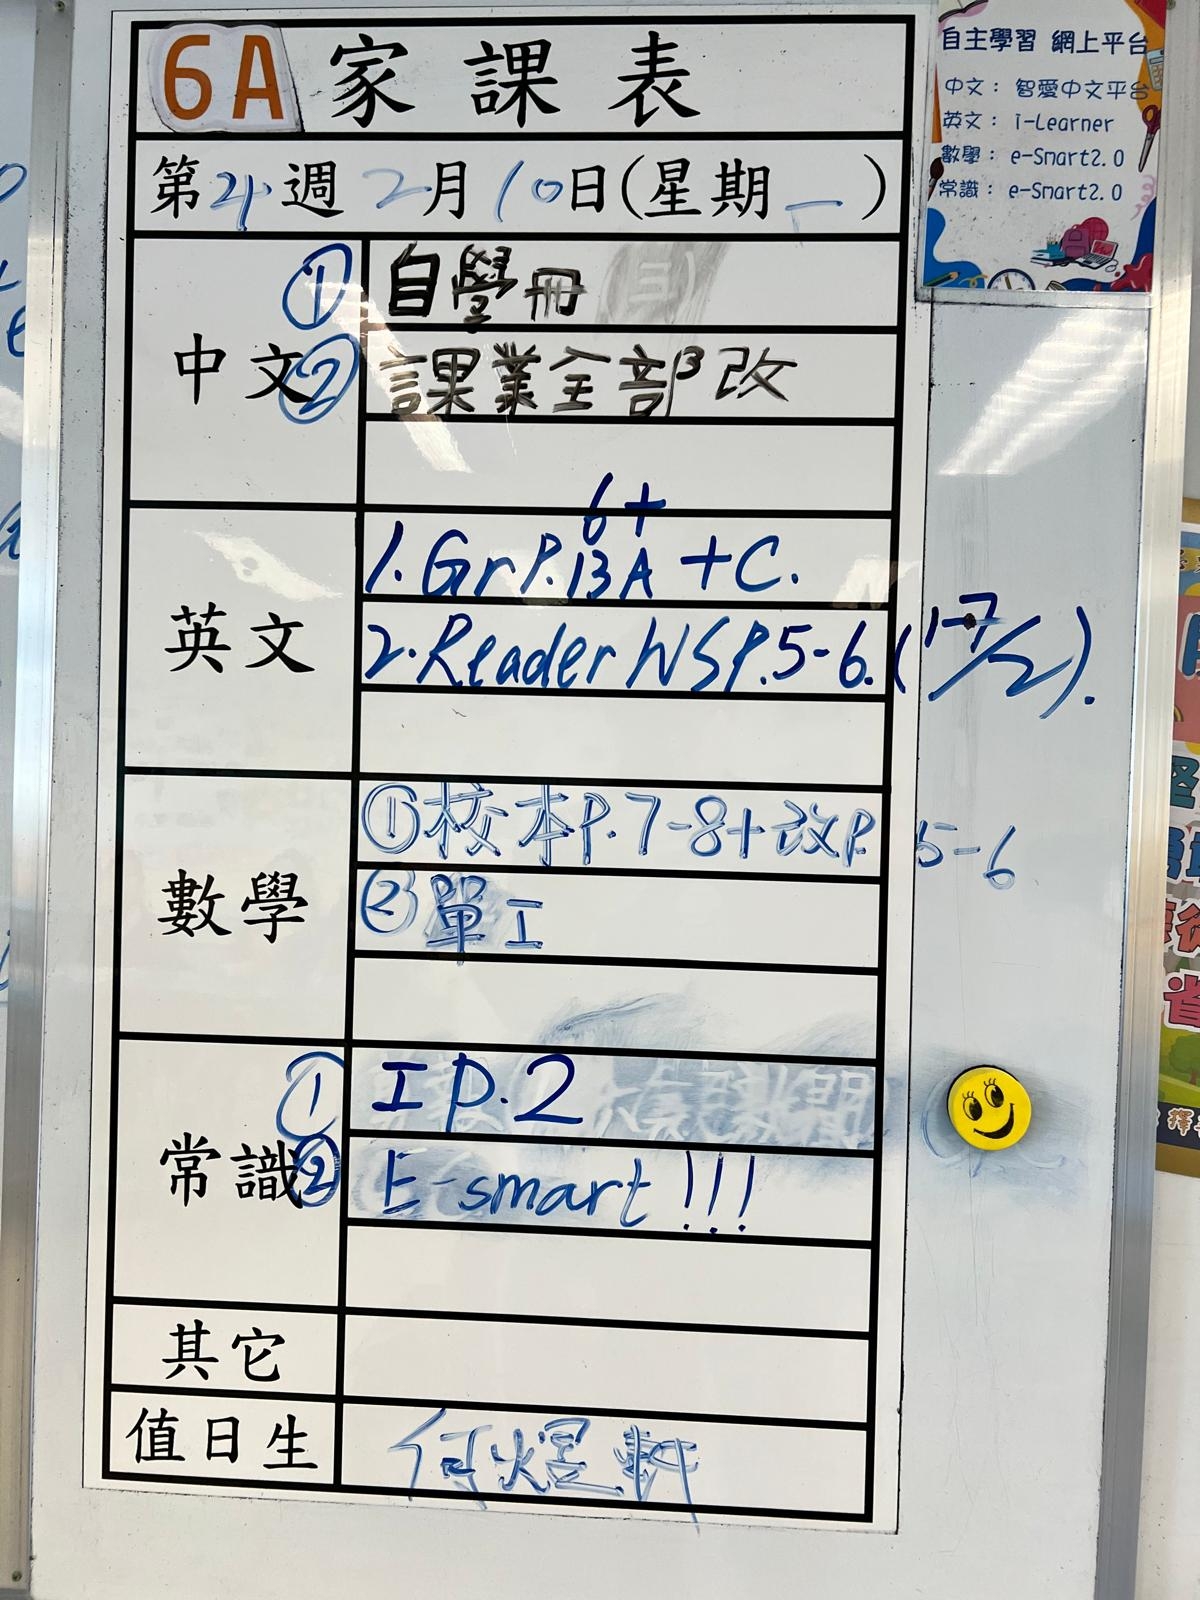 6A 家課表
第21週 2月10日(星期一)
中文
① 自學冊
② 課業全部改
英文
6+
1. Gr P.13A + C.
2. Reader WS P.5-6. (17/2).
數學
① 校本P.7-8+改P.5-6
② 單I
常識
① I P.2
② E-smart!!!
其它
值日生
何煜軒
自主學習 網上平台
中文： 智愛中文平台
英文： i-Learner
數學： e-Smart2.0
常識： e-Smart2.0